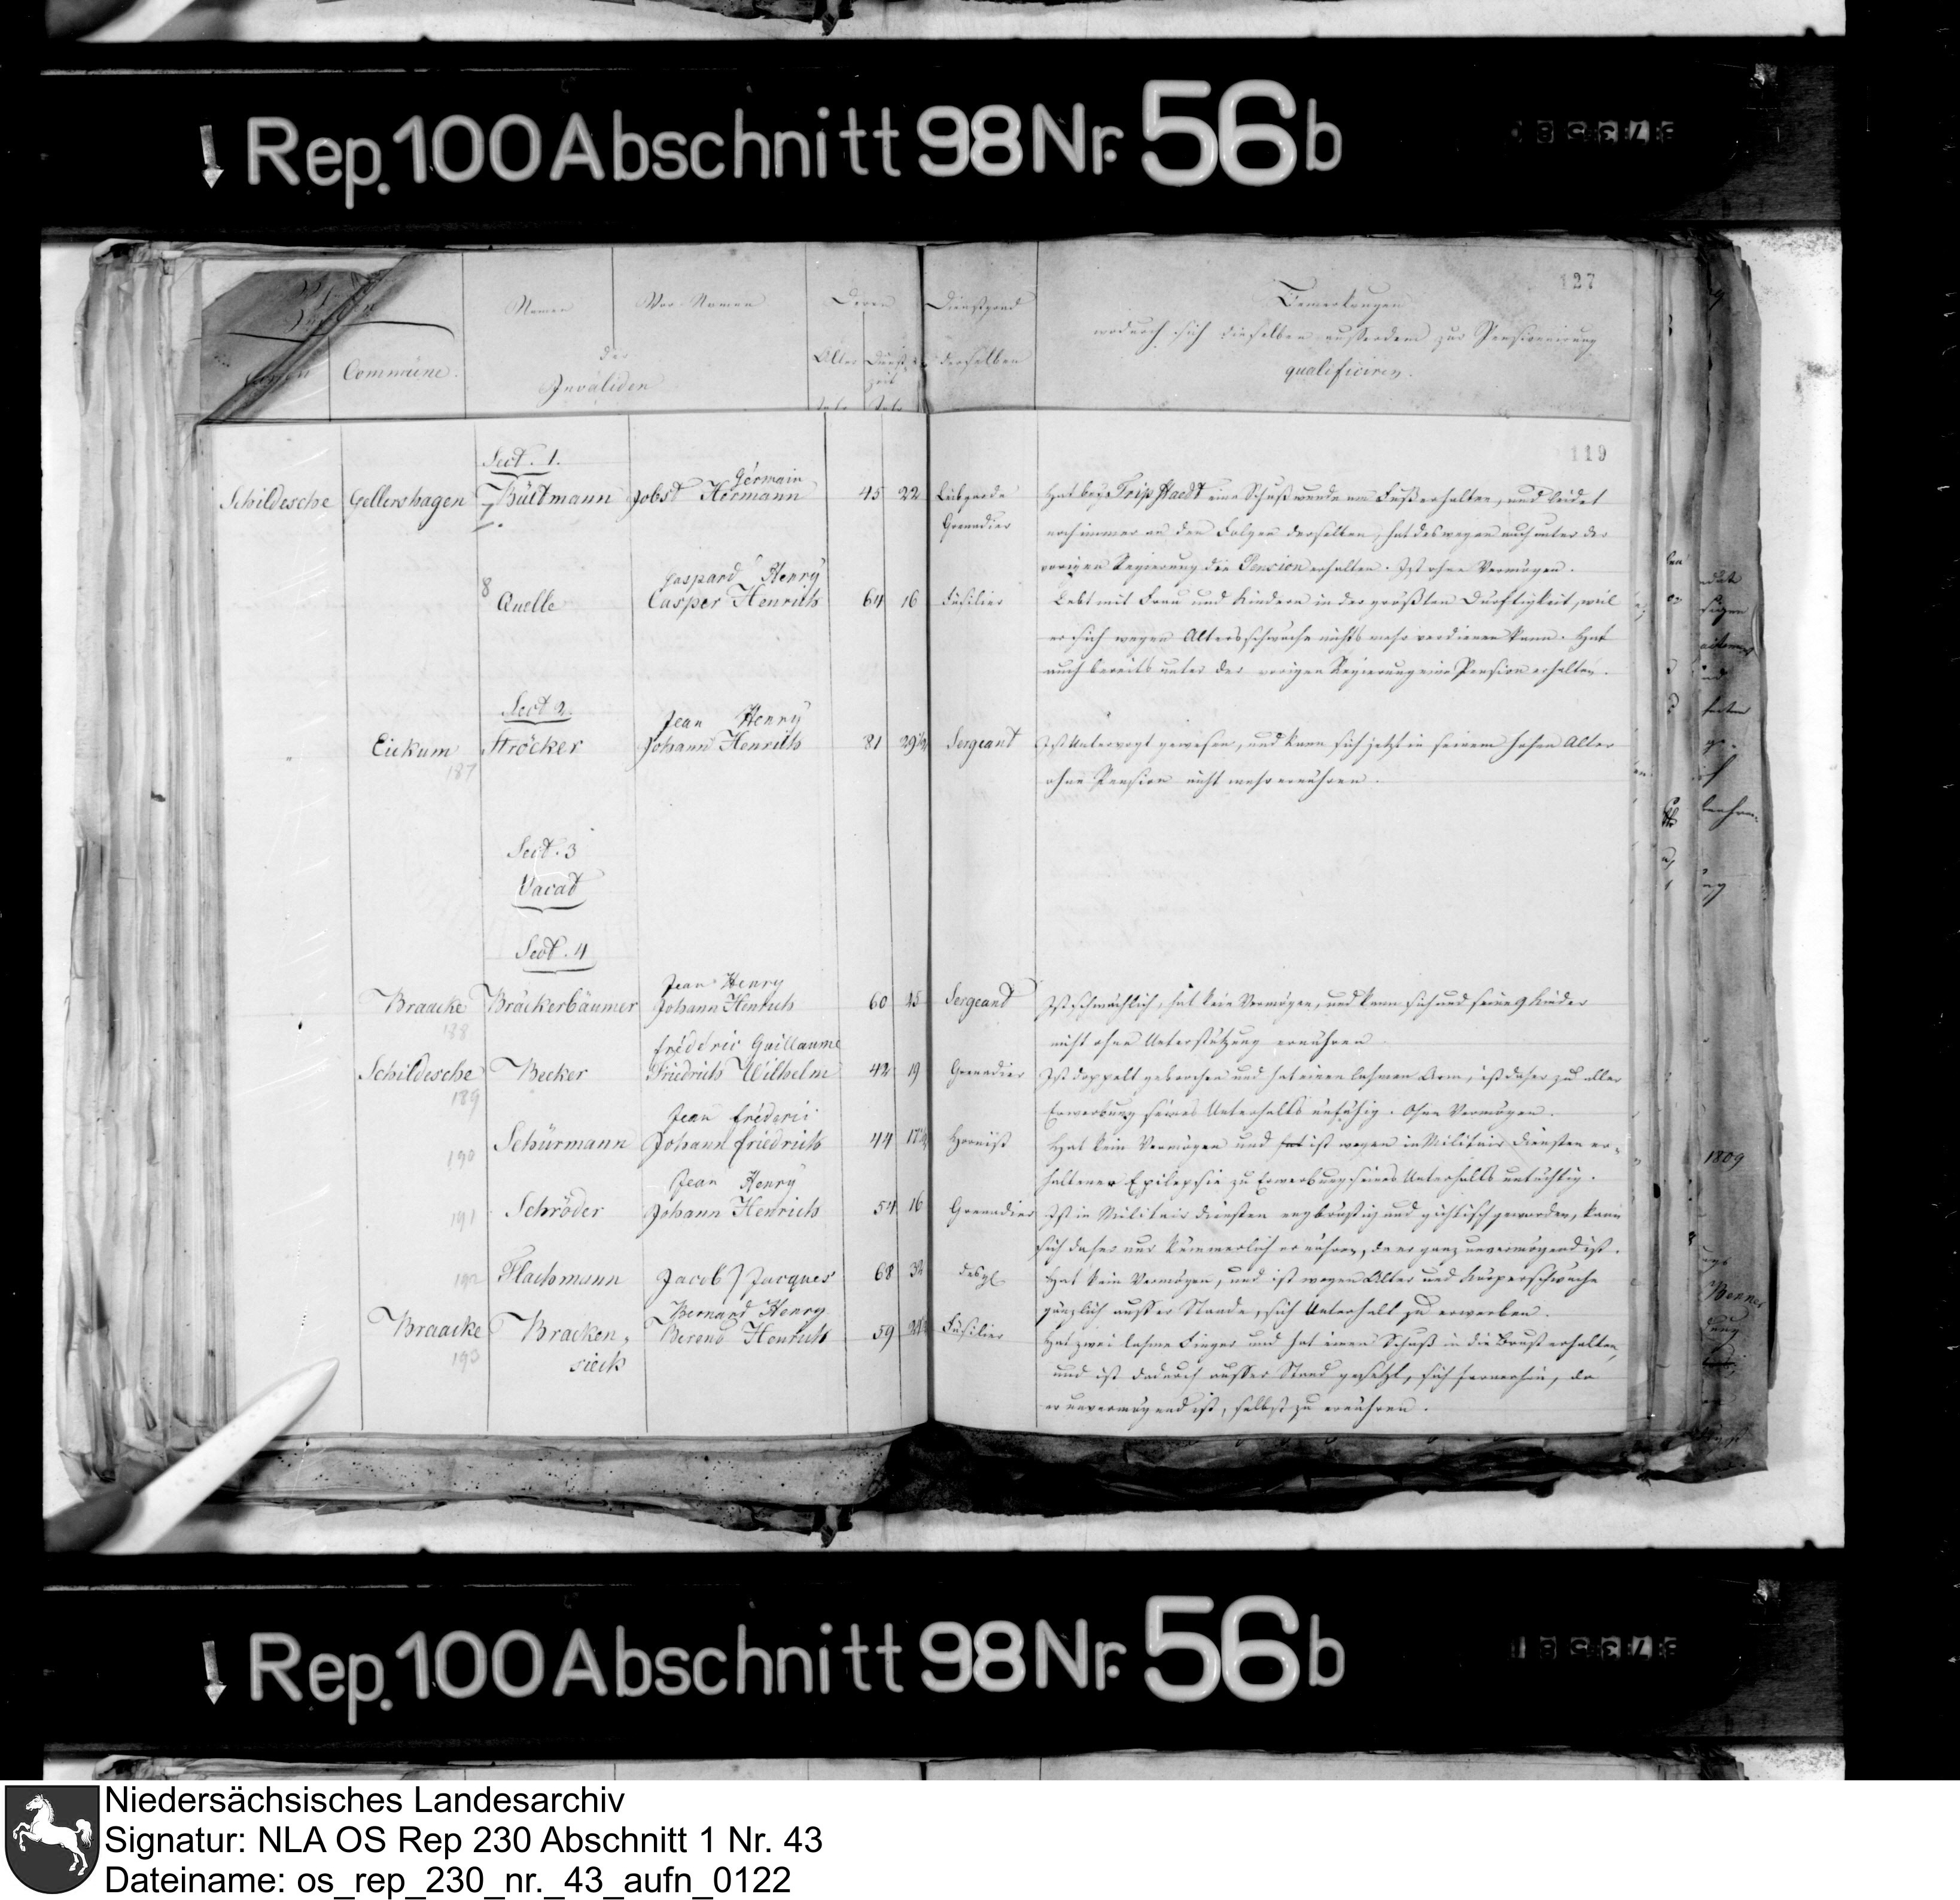 Rep. 100 Abschnitt 98 Nr. 56 b
127
Namen
Vor-Namen
Deren
Dienstgrad
Bemerkungen
wodurch sich dieselben ausserdem zur Pensionirung
Commüne.
der
Alter
Dienst-
derselben
Invaliden
zeit
qualificiren.
119
Sect. 1.
Germain
Schildesche Gellershagen 7 Bültmann Jobst Hermann 45 22 Leibgarde Hat beÿ eine Schußwunde am Fuß erhalten, und leidet
Grenadier noch immer an den Folgen derselben, hat deswegen auch unter der
vorigen Regierung die Pension erhalten. Ist ohne Vermögen.
Gaspard Henry
8 Quelle Casper Henrich 64 16 Füsilier Lebt mit Frau und Kindern in der größten Dürftigkeit, weil
er sich wegen Altersschwäche nichts mehr verdienen kann. Hat
auch bereits unter der vorigen Regierung eine Pension erhalten.
Sect 2.
Jean Henry
Eickum Ströcker Johann Henrich 81 29½ Sergeant Ist Untervogt gewesen, und kann sich jetzt in seinem hohen Alter
187
ohne Pension nicht mehr ernähren.
Sect. 3
Vacat
Sect. 4
Jean Henry
Braacke Bräckerbäumer Johann Henrich 60 15 Sergeant Ist schwächlich, hat kein Vermögen, und kann sich und seine Kinder
188
nicht ohne Unterstützung ernähren.
fréderic Guillaume
Schildesche Becker Friedrich Wilhelm 42 19 Grenadier Ist doppelt gebrochen und hat einen lahmen Arm, ist daher zu aller
189
Erwerbung seines Unterhalts unfähig. Ohne Vermögen.
Jean fréderic
190 Schürmann Johann friedrich 44 17½ Hornist Hat kein Vermögen und hat ist wegen in Militair Diensten er-
haltener Epilepsie zu Erwerbung seines Unterhalts untüchtig.
Jean Henry
191 Schröder Johann Henrich 54 16 Grenadier Ist in Militair Diensten engbrüstig und gichtisch geworden, kann
sich daher nur kümmerlich ernähren, da er ganz unvermögend ist.
192 Flachmann Jacob / Jacques 68 32 desgl. Hat kein Vermögen, und ist wegen Alter und Körperschwäche
gänzlich ausser Stande, sich Unterhalt zu erwerben.
Bernard Henry
Braacke Bracken- Berend Henrich 59 Füsilier Hat zwei lahme Finger und hat einen Schuß in die Brust erhalten,
193 sieck und ist dadurch ausser Stand gesetzt, sich fernerhin, da
er unvermögend ist, selbst zu ernähren.
1809
Rep. 100 Abschnitt 98 Nr. 56 b
Niedersächsisches Landesarchiv
Signatur: NLA OS Rep 230 Abschnitt 1 Nr. 43
Dateiname: os_rep_230_nr._43_aufn_0122